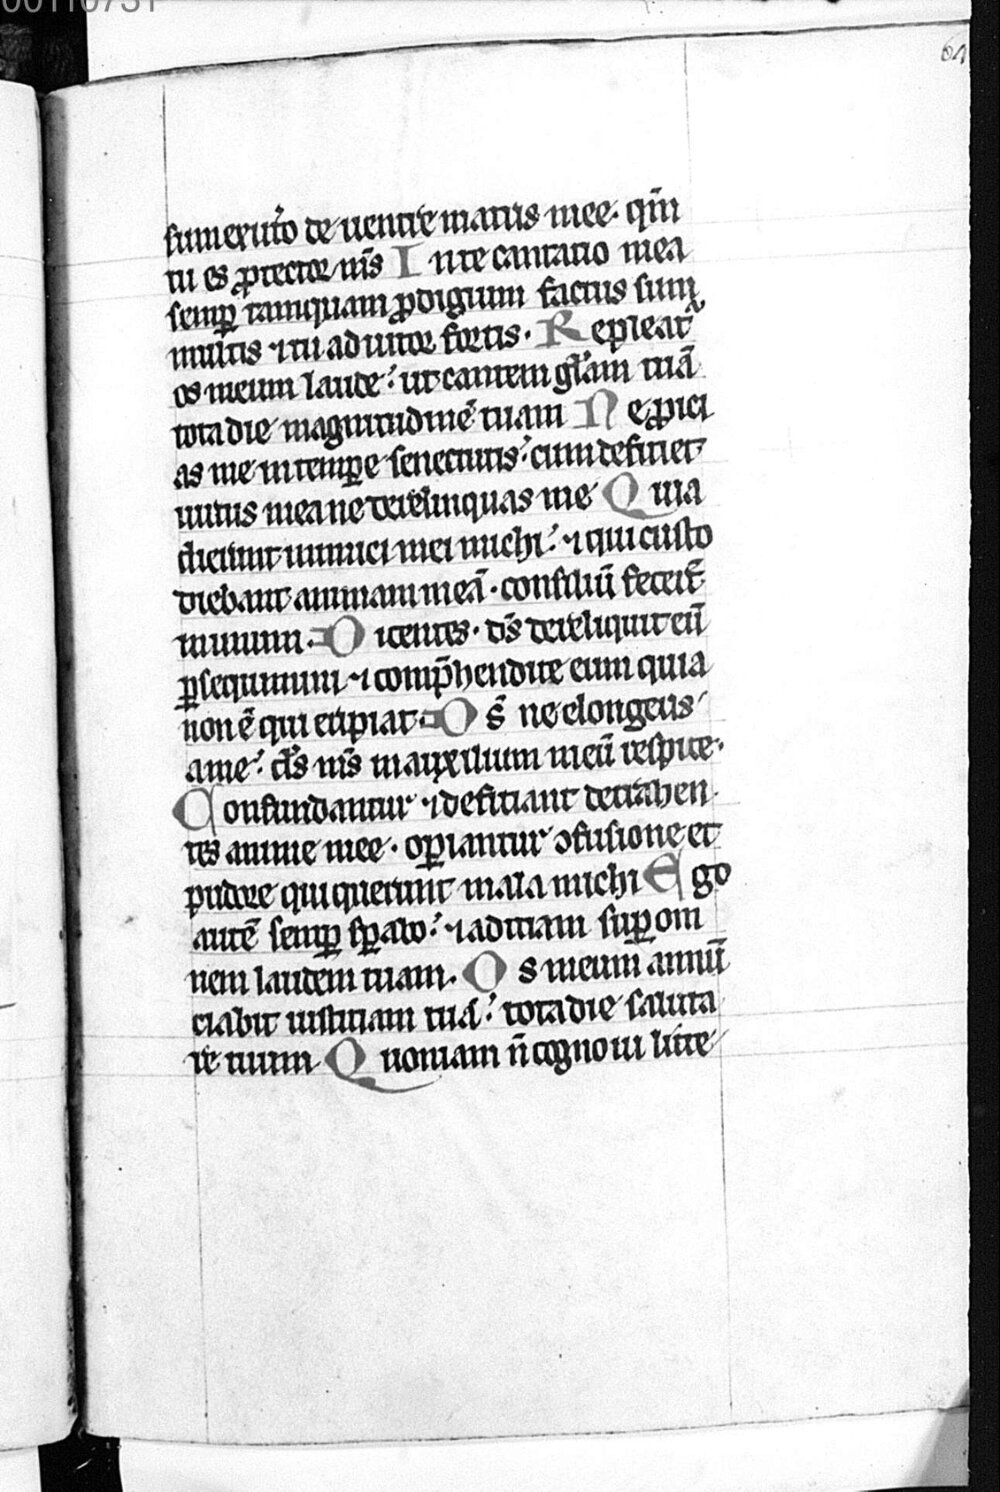 00110731
64
sum ex utͦo de uentre matris mee· qm̄
tu es ꝓtector m̄s In te cantatio mea
semꝑ tamquam ꝓdigium factus sum
multis ⁊ tu adiutor fortis· Repleat᷑
os meum laude· ut cantem gl̄am tuā
tota die magnitudinē tuam Ne ꝓici
as me in temꝑe senectutis· cum defitiet
uirtus mea ne derelinquas me Quia
dixerunt inimici mei michi· ⁊ qui custo
diebant animam meā· consiliū fecer̄t
in unum· Dicentes· ds̄ dereliquit eū
ꝑsequimini ⁊ comp̄hendite eum quia
non ē qui eripiat· Ds̄ ne elongeris
a me· ds̄ m̄s in auxilium meū respice·
Confundantur ⁊ defitiant detrahen
tes anime mee· oꝑiantur ꝯfusione et
pudore qui querunt mala michi Ego
autē semꝑ sꝑabo· ⁊ aditiam suꝑ om
nem laudem tuam· Os meum annū
ciabit iustitiam tuā· tota die saluta
re tuum Quoniam n̄ cognoui litte